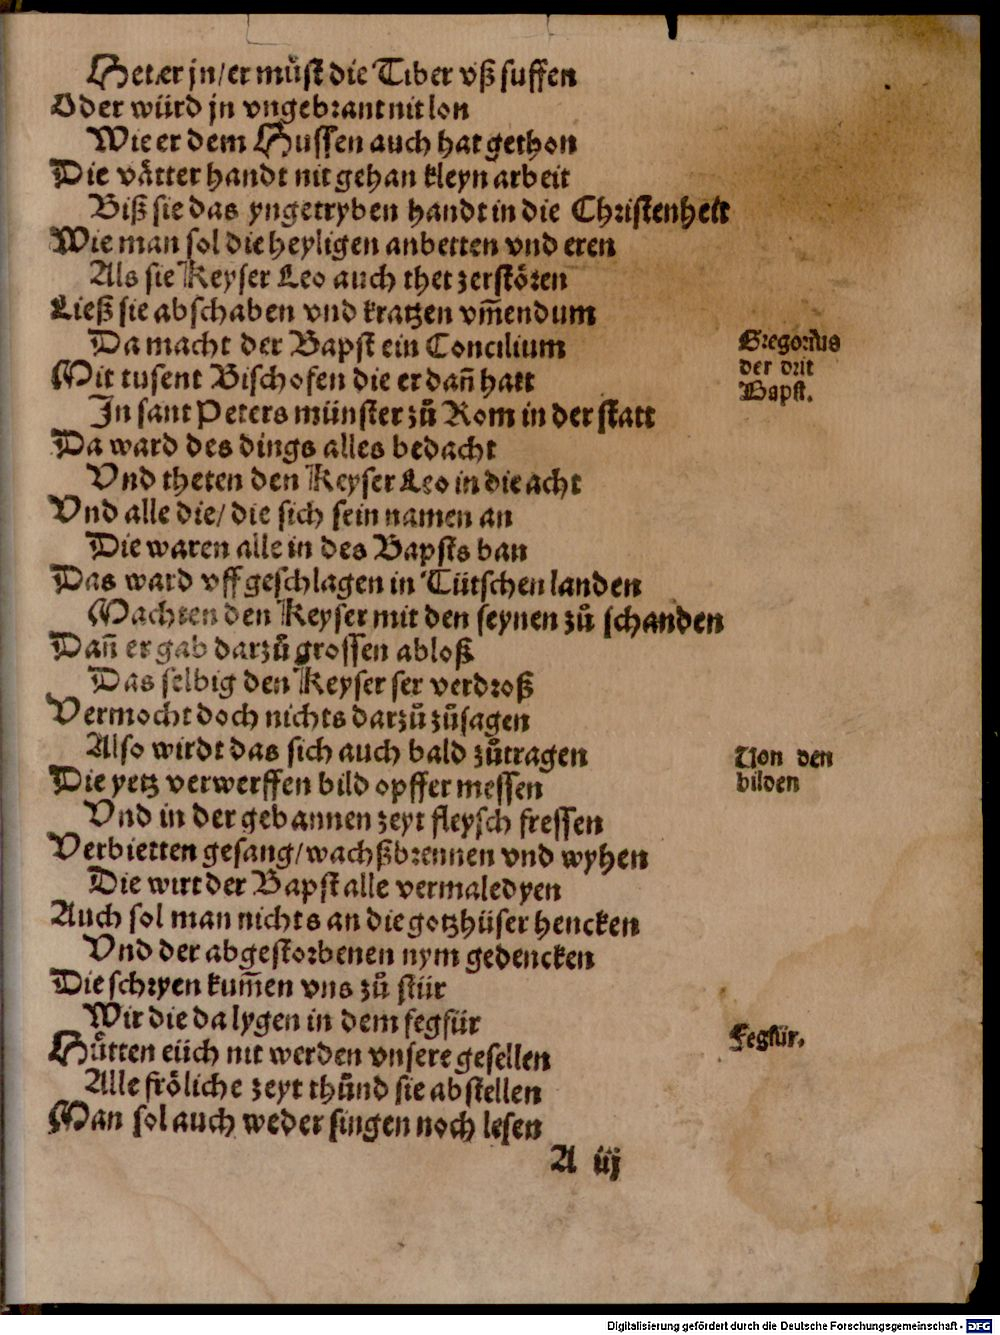 Het er jn/er muͦſt die Tiber vß ſuffen
Oder würd jn vngebꝛant nit lon
Wie er dem Huſſen auch hat gethon
Die vaͤtter handt nit gehan kleyn arbeit
Biß ſie das yngetryben handt in die Chꝛiſtenheit
Wie man ſol die heyligen anbetten vnd eren
Als ſie Keyſer Leo auch thet zerſtoͤꝛen
Ließ ſie abſchaben vnd kratzen vm̃endum
Da macht der Bapſt ein Concilium
Gregoꝛius
der dꝛit
Bapſt.
Mit tuſent Biſchofen die er dañ hatt
In ſant Peters münſter zuͦ Rom in der ſtatt
Da ward des dings alles bedacht
Vnd theten den Keyſer Leo in die acht
Vnd alle die/ die ſich ſein namen an
Die waren alle in des Bapſts ban
Das ward vff geſchlagen in Tütſchen landen
Machten den Keyſer mit den ſeynen zuͦ ſchanden
Dañ er gab darzuͦ groſſen abloß
Das ſelbig den Keyſer ſer verdꝛoß
Vermocht doch nichts darzuͦ zuͦſagen
Alſo wirdt das ſich auch bald zuͦtragen
Von den
bilden
Die yetz verwerffen bild opffer meſſen
Vnd in der gebannen zeyt fleyſch freſſen
Verbietten geſang/wachßbꝛennen vnd wyhen
Die wirt der Bapſt alle vermaledyen
Auch ſol man nichts an die gotzhüſer hencken
Vnd der abgeſtoꝛbenen nym gedencken
Die ſchꝛyen kum̃en vns zuͦ ſtür
Wir die da lygen in dem fegfür
Fegfür.
Huͤtten eüch nit werden vnſere geſellen
Alle froͤliche zeyt thuͦnd ſie abſtellen
Man ſol auch weder ſingen noch leſen
A iij
Digitalisierung gefördert durch die Deutsche Forschungsgemeinschaft - DFG